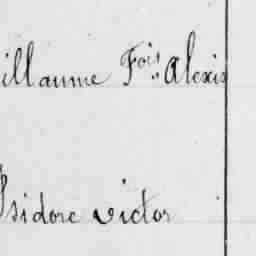 illaume Fois Alexis
Isidore victor